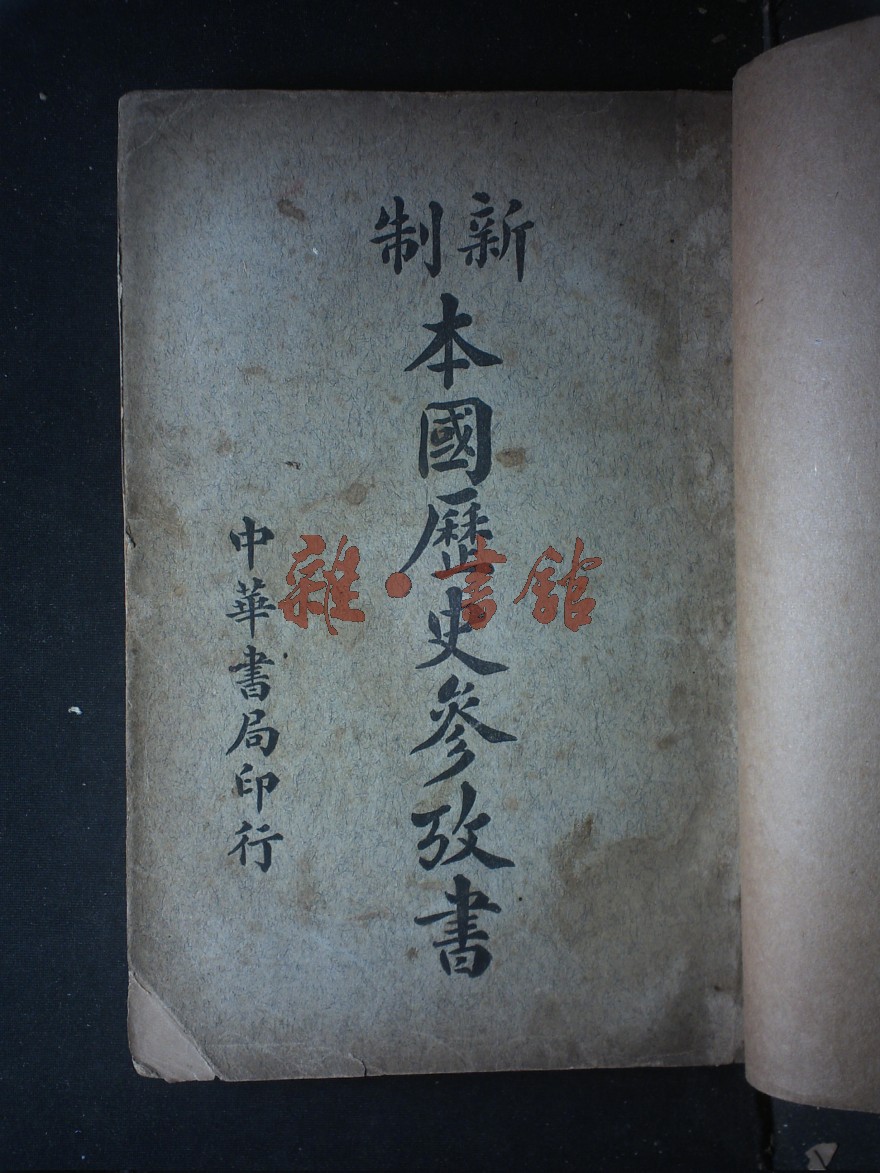 新制
本國歷史參攷書
中華書局印行
雜·書館